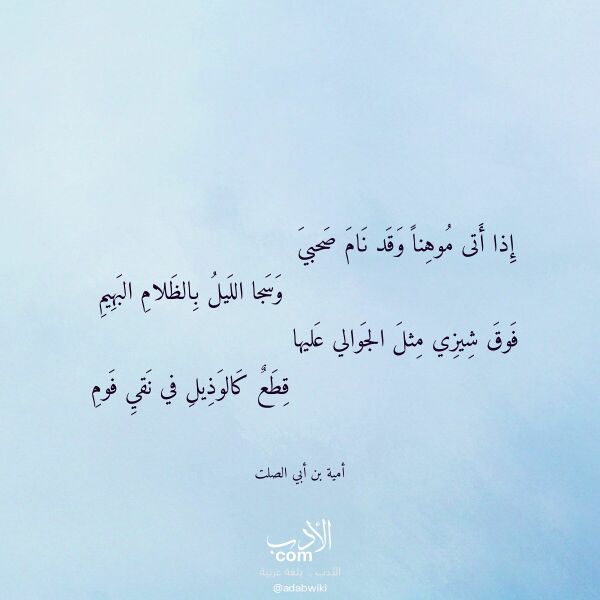 إِذا أَتى مُوهِناً وَقَد نَامَ صَحبيَ
وَسَجا اللَيلُ بِالظَلامِ البَهِيمِ
فَوقَ شِيزِي مِثلَ الجَوالي عَليها
قِطَعٌ كَالوَذِيلِ في نَقيِ فَومِ
أمية بن أبي الصلت
الأدب
com
الأدب .. بلغة عربية
@adabwiki